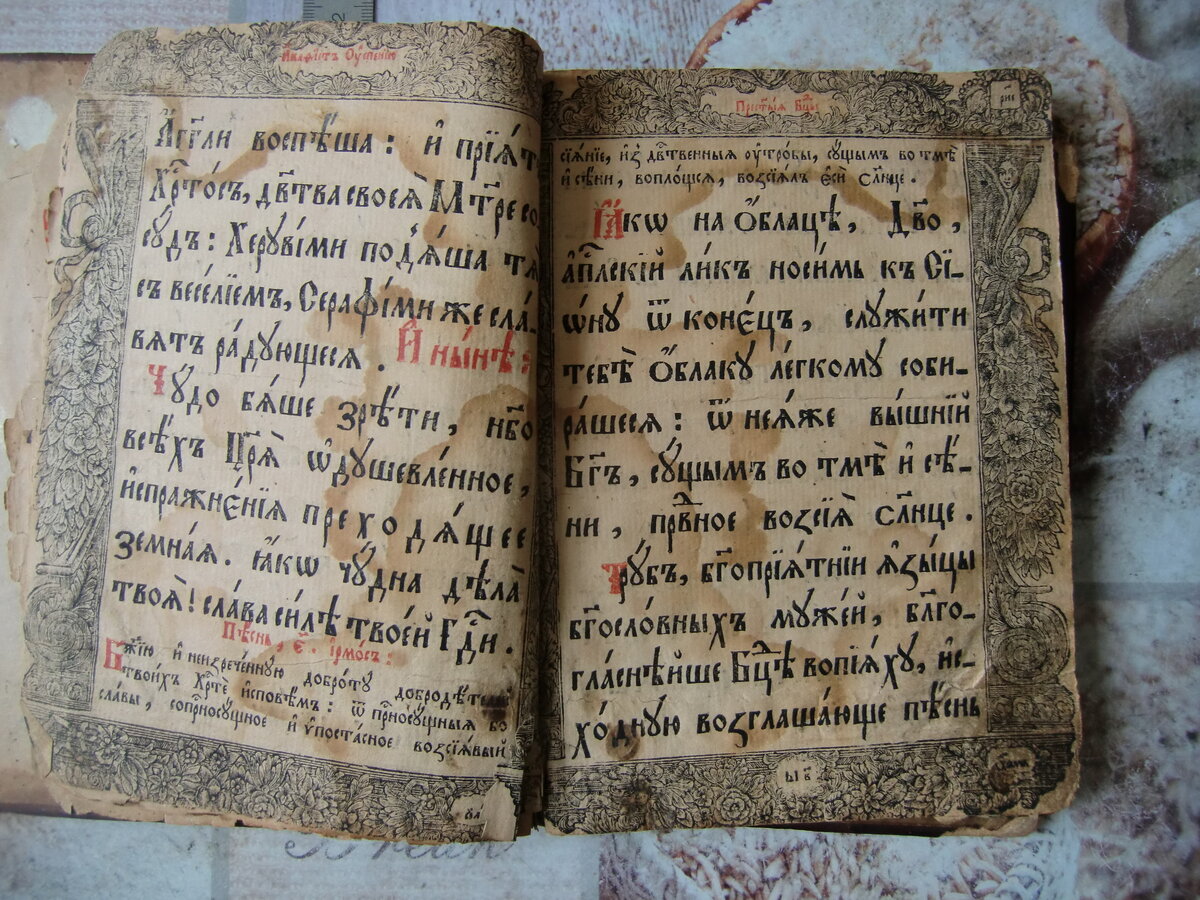 А҆кафі́стъ Оу҆спе́нїю
А҆́гг҃ли воспѣ́ша : и҆ прїѧ́тъ
Хр҃то́съ, дв҃тва своеѧ̀ Мт҃ре со
сꙋ́дъ : Херꙋві́ми под̾ѧ́ша тѧ̀
съ весе́лїемъ, Серафі́ми же сла́-
вѧтъ ра́дꙋющесѧ . И҆ ны́нѣ :
Чꙋ́до бѧ́ше зрѣ́ти , нб҃о
всѣ́хъ Цр҃ѧ̀ ѡ҆дꙋшевле́нное ,
и҆спражнє́нїѧ преходѧ́щее
земна́ѧ . ꙗ҆́кѡ чꙋ́дна дѣла̀
твоѧ̀ ! сла́ва си́лѣ твое́й Гд҃и .
Пѣ́снь, є҃ . І҆рмо́съ :
Бж҃їю и҆ неизрече́ннꙋю добро́тꙋ добродѣ́телей
твои́хъ Хр҃тѐ и҆сповѣ́мъ : ѿ прⷭ҇носꙋ́щныѧ бо
сла́вы , сопрⷭ҇носꙋ́щное и҆ ѵ҆поста́сное возсїѧ́вый
Прест҃ы́ѧ Бц҃ы
рн҃і
сїѧ́нїе, и҆з̾ дв҃твенныѧ оу҆тро́бы, сꙋ́щымъ во тмѣ̀
и҆ сѣ́ни , вопло́щсѧ , возсїѧ́лъ є҆сѝ Сл҃нце .
Ꙗ҆́кѡ на Ѻ҆́блацѣ, Дв҃о ,
а҆пⷭ҇лскїй ли́къ носи́мь къ Сї-
ѡ́нꙋ ѿ конє́цъ, слꙋжи́ти
тебѣ̀ Ѻ҆́блакꙋ ле́гкомꙋ соби-
ра́шесѧ : ѿ неѧ́же вы́шнїй
Бг҃ъ, сꙋ́щымъ во тмѣ̀ и҆ сѣ́-
ни , прв҃ное возсїѧ̀ сл҃нце .
Трꙋ́бъ, бг҃опрїѧ́тнїи ѧ҆зы́цы
бг҃осло́вныхъ мꙋже́й, бл҃го-
гла́снѣйше Бц҃ѣ вопїѧ́хꙋ, и҆с-
хо́днꙋю возглаша́юще пѣ́снь